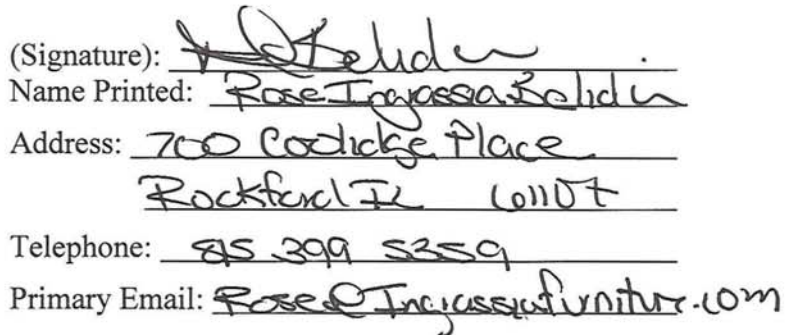 (Signature):
Name Printed: Rose Ingrassia Bolidu
Address: 700 Coolidge Place
Rockford IL 61107
Telephone: 815 399 5359
Primary Email: Rose@Ingrassiafurniture.com